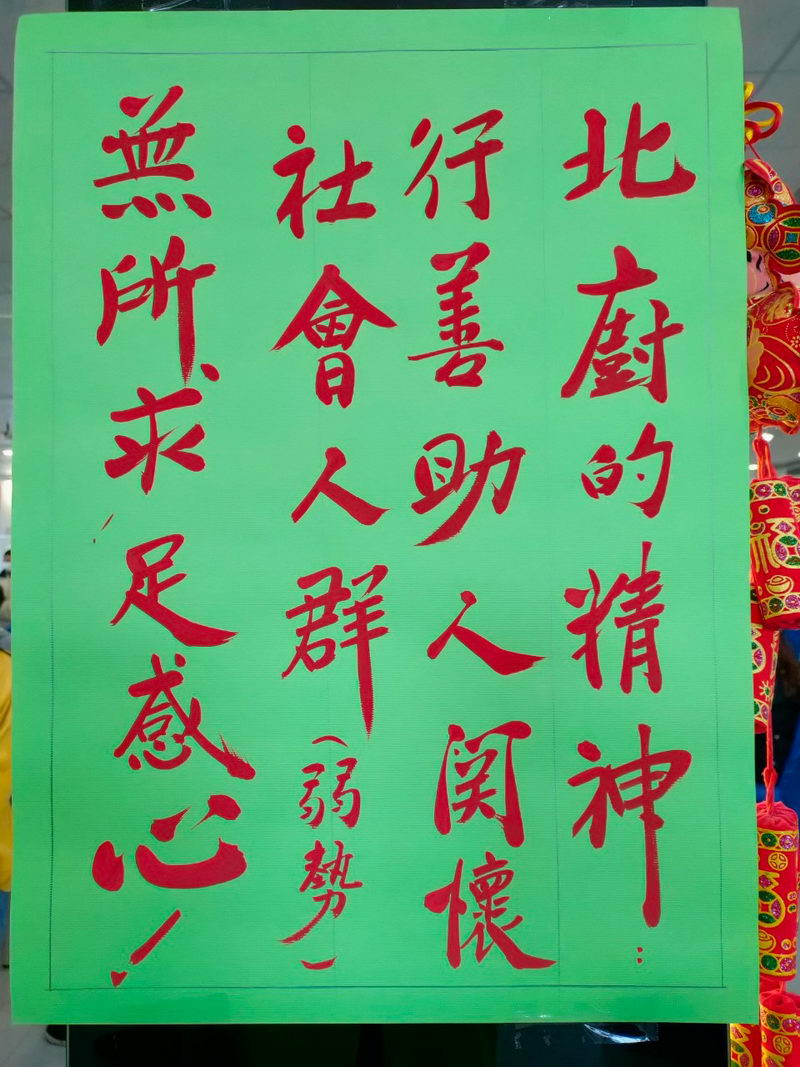 北廚的精神：
行善助人関懷
社會人群（弱勢）
無所求足感心！